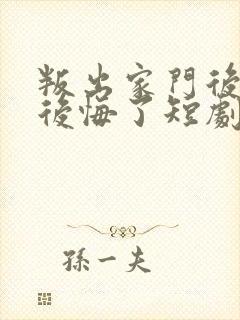 叛出家門後
後悔了短劇
孫一夫